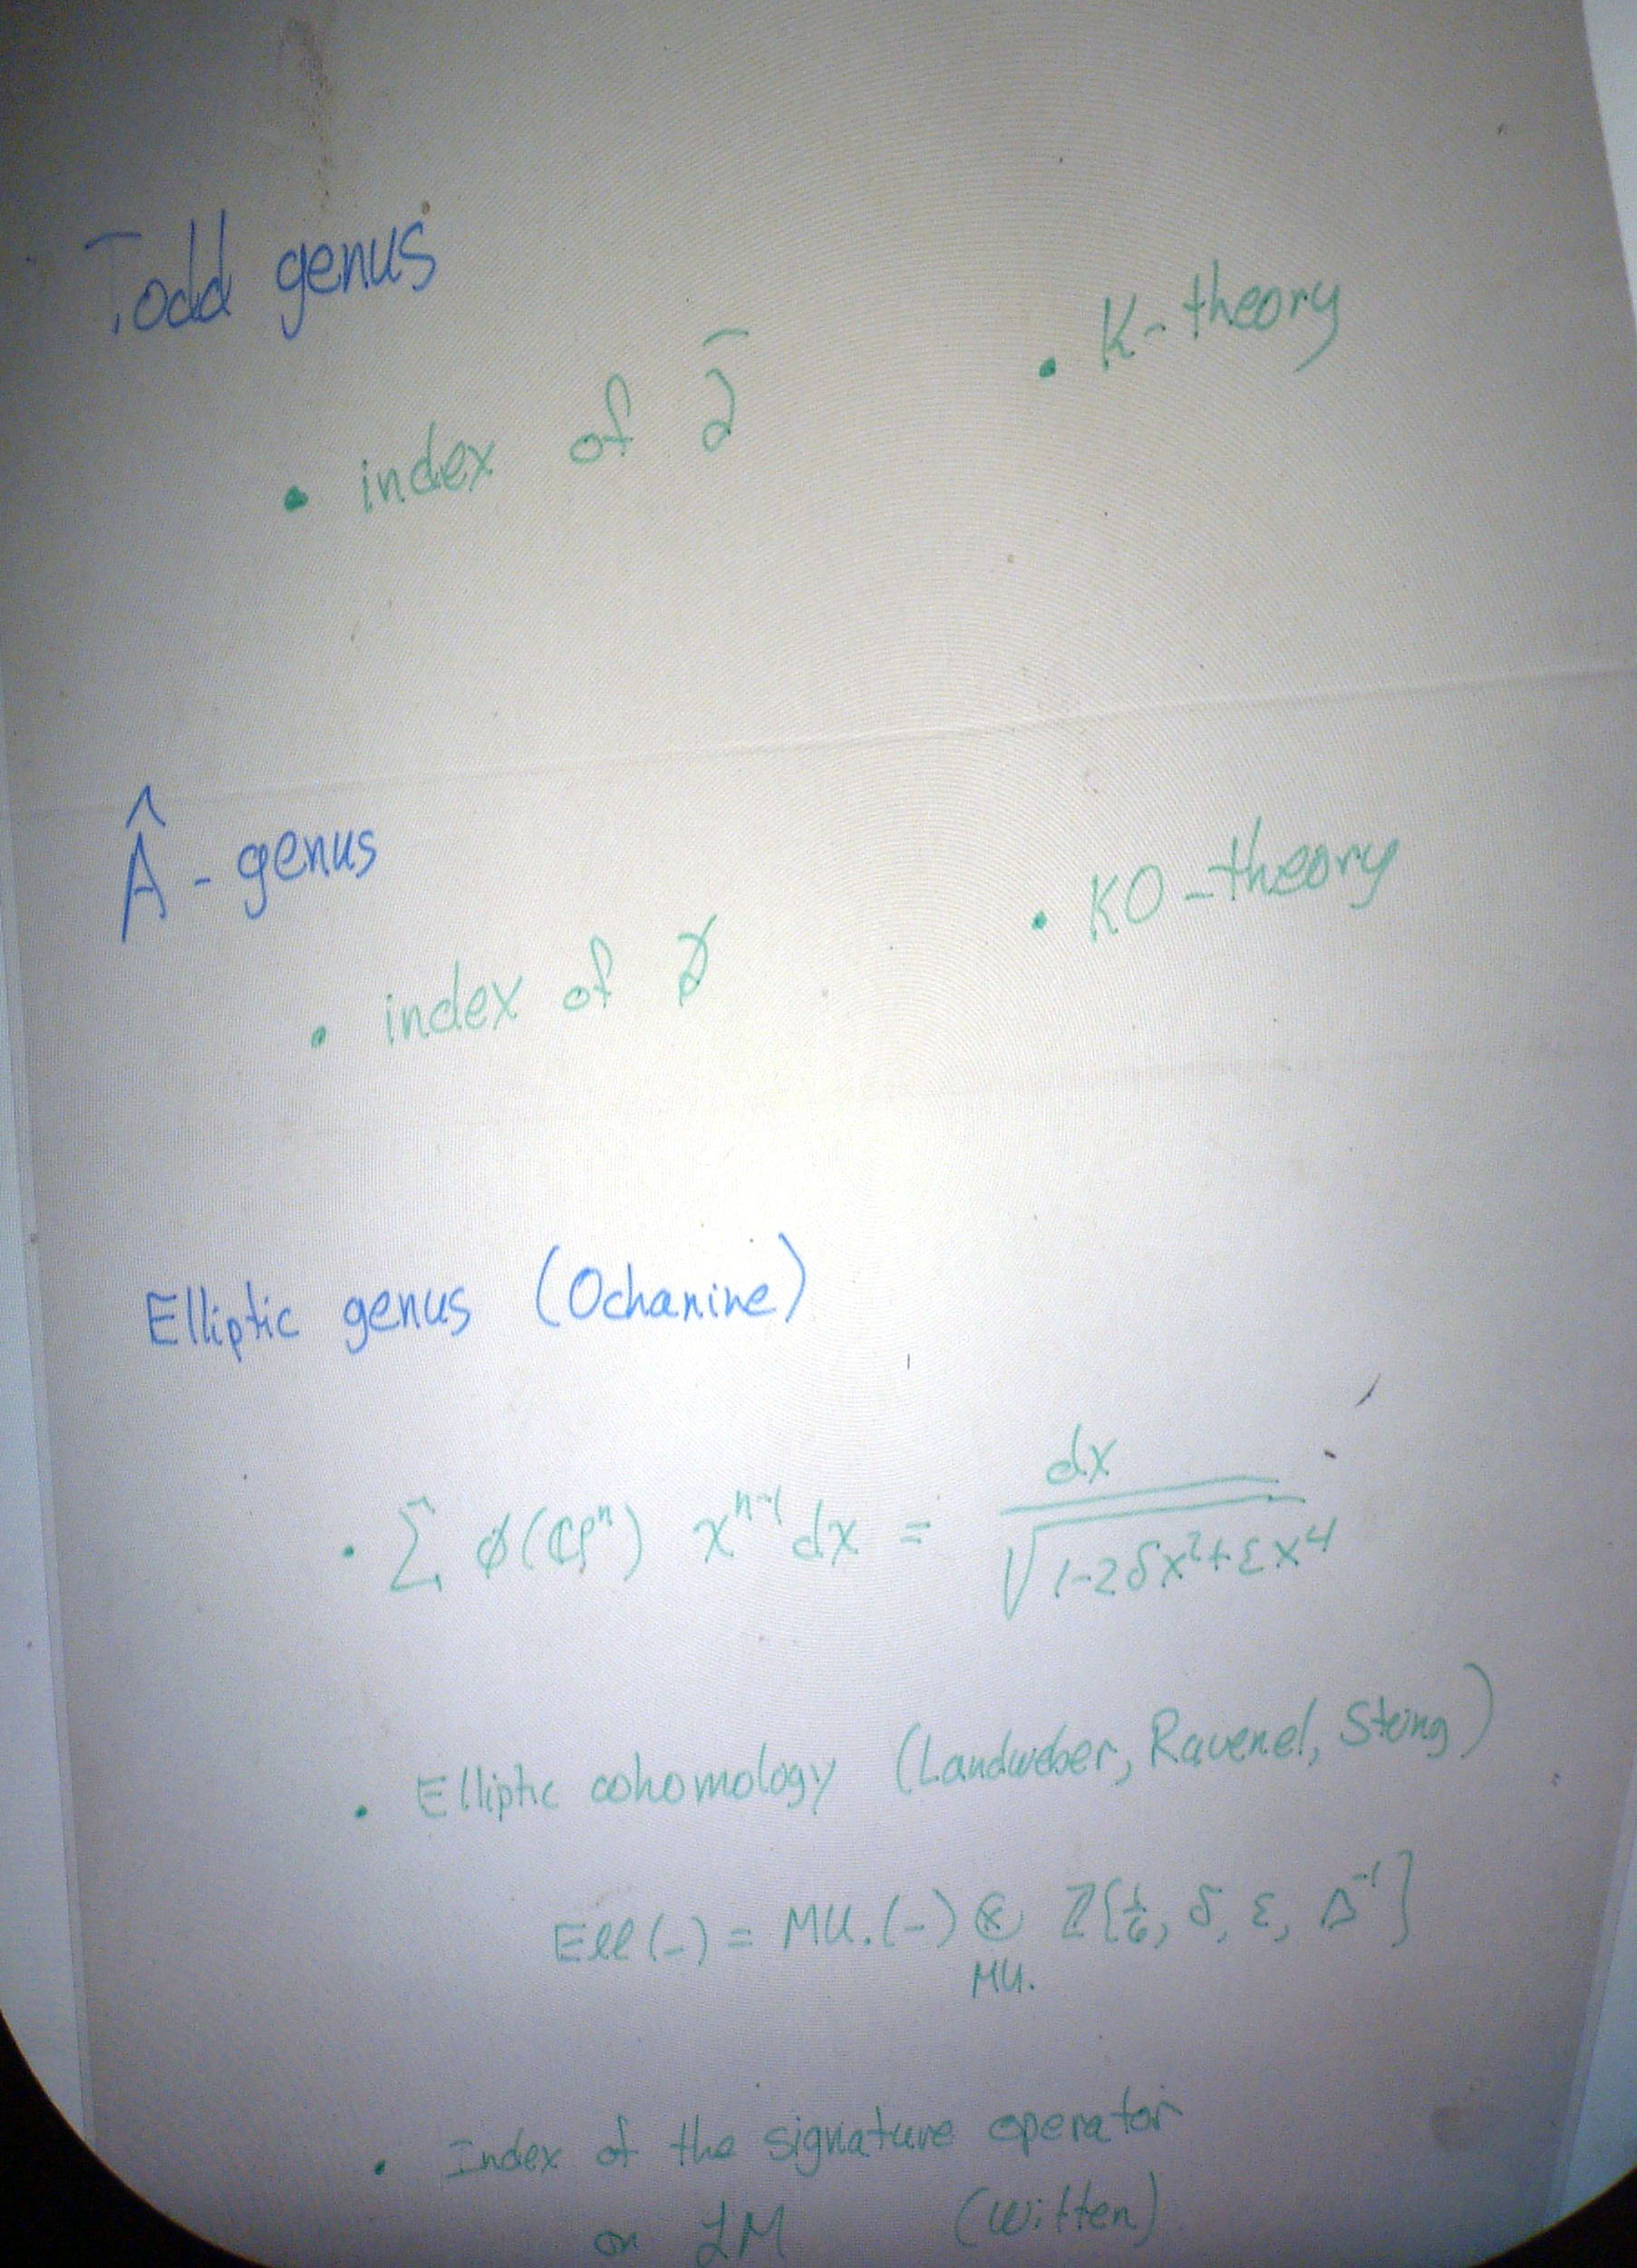 Todd genus
• index of ∂̄
• K-theory
Â-genus
• index of ∂̸
• KO-theory
Elliptic genus (Ochanine)
• ∑ ϕ(ℂPⁿ) xⁿ⁻¹ dx = dx / √(1-2δx²+εx⁴)
• Elliptic cohomology (Landweber, Ravenel, Stong)
Ell(-) = MU.(-) ⊗ ℤ[1/6, δ, ε, Δ⁻¹]
MU.
• Index of the signature operator
on ℒM (Witten)